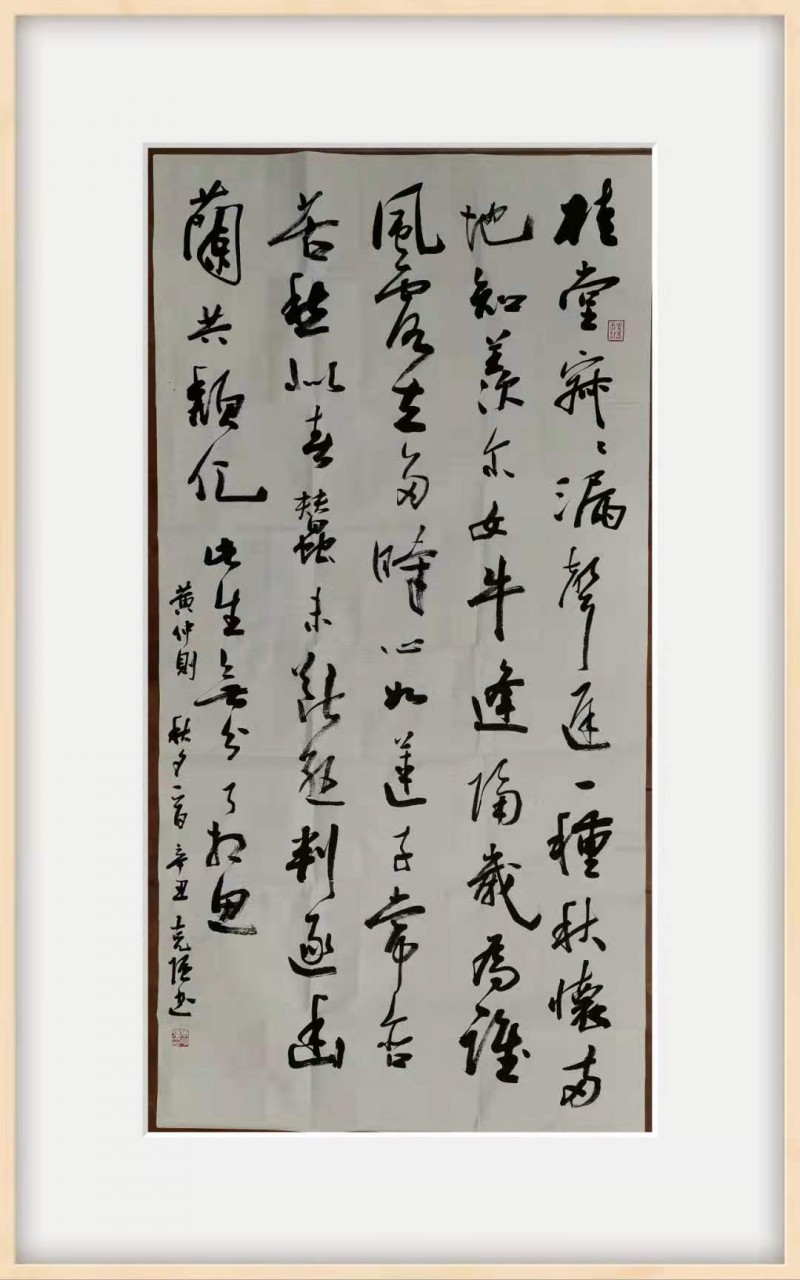 桂堂寂々漏聲遲一種秋懷兩
地知羨尔女牛逢隔歲為誰
風露立多時心如蓮子常含
苦愁似春蠶未斷絲判逐幽
蘭共頹化此生無分了相思
黄仲則 秋夕一首 辛丑 克 书